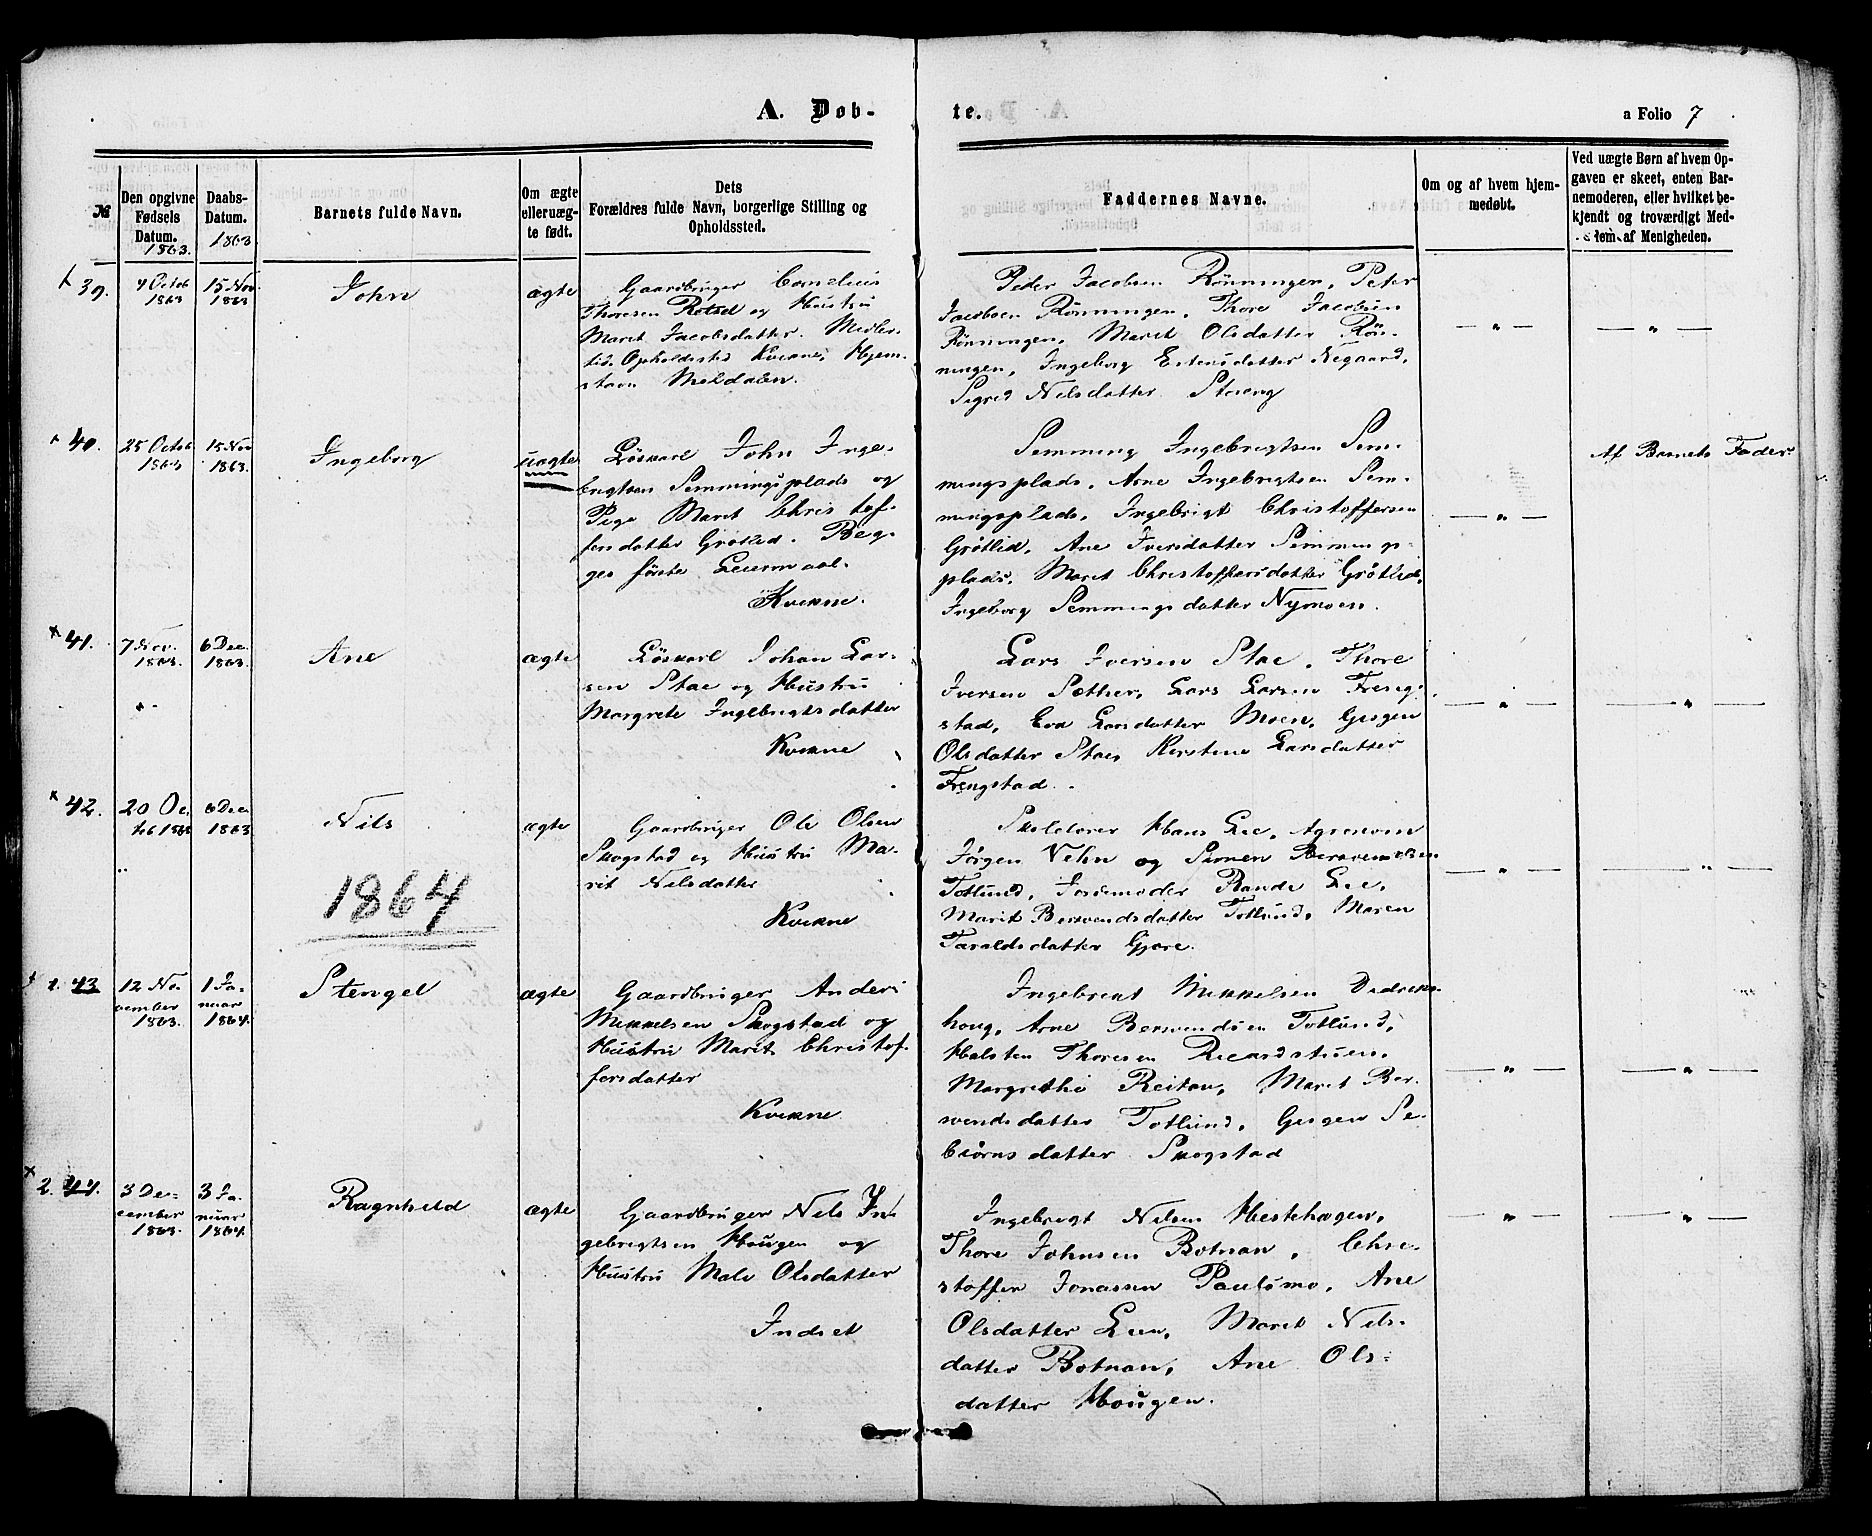 A. Døb-
te.
a Folio 7
№
Den opgivne
Fødsels
Datum.
1863.
Daabs-
Datum.
1863
Barnets fulde Navn.
Om ægte
eller uæg-
te født.
Dets
Forældres fulde Navn, borgerlige Stilling og
Opholdssted.
Faddernes Navne.
Om og af hvem hjem-
medøbt.
Ved uægte Børn af hvem Op-
gaven er skeet, enten Bar-
nemoderen, eller hvilket be-
kjendt og troværdigt Med-
lem af Menigheden.
39.
4 Octob
1863
15 Nov
1863
John
ægte
Gaardbruger Cornelius
Thoresen og Hustru
Marit Jacobsdatter. Midler-
tid. Opholdssted Kvikne, Hjem-
stavn Meldalen.
Peder Jacobsen Rönningen, Peter
Jacobsen Rönningen, Thore Jacobsen
Rönningen, Marit Olsdatter Rön-
ningen, Ingeborg Estensdatter Negaard,
Sigrid Nilsdatter Stueng
— " —
— " —
40.
25 Octob
1863
15 Nov
1863.
Ingeborg
uægte
Löskarl John Inge-
brigtsen Semmingsplads og
Pige Marit Christof-
fersdatter Grötlid. Beg-
ges förste Leiermaal.
Kvikne.
Semming Ingebrigtsen Sem-
mingsplads, Arne Ingebrigtsen Sem-
mingsplads, Ingebrigt Christoffersen
Grötlid, Ane Iversdatter Semmings-
plads, Marit Christoffersdatter Grötlid,
Ingeborg Semmingsdatter Nymoen.
— " —
Af Barnets Fader
41.
7 Nov.
1863.
6 Dec.
1863.
Ane
ægte
Löskarl Johan Lar-
sen Stae og Hustru
Margrete Ingebrigtsdatter
Kvikne
Lars Iversen Stae, Thore
Iversen Sæther, Lars Larsen Freng-
stad, Eva Larsdatter Moen, Gurgen
Olsdatter Stae, Kerstine Larsdatter
Frengstad.
— " —
— " —
42.
20 Oc
tob 1863
6 Dec
1863
Nils
ægte
Gaardbruger Ole Olsen
Skogstad og Hustru Ma-
rit Nilsdatter
Kvikne
Skolelærer Hans Lie, Agronom
Jörgen Vehn og Simen Bersvendsen
Totlund, Jordemoder Rande Lie,
Marit Bersvendsdatter Totlund, Maren
Taraldsdatter Gjøre.
— " —
— " —
1864
1. 43
12 No-
vember
1863.
1 Ja-
nuar
1864.
Stengel
ægte
Gaardbruger Anders
Mikkelsen Skogstad og
Hustru Marit Christof-
fersdatter
Kvikne
Ingebrikt Mikkelsen Didriks-
houg, Arne Bersvendsen Totlund,
Halsten Thoresen Ricardstuen,
Margrethe Reitan, Marit Ber-
svendsdatter Totlund, Gurgen Se-
biörnsdatter Skogstad
— " —
— " —
2. 44.
3 De-
cember
1863.
3 Ja-
nuar
1864.
Ragnhild
ægte
Gaardbruger Nils In-
gebrigtsen Hougen og
Hustru Mali Olsdatter
Indset
Ingebrigt Nilsen Hestehagen,
Thore Johnsen Botnan, Chri-
stoffer Jonassen Paulsmo, Ane
Olsdatter Lien, Marit Nils-
datter Botnan, Ane Ols-
datter Hougen.
— " —
— " —